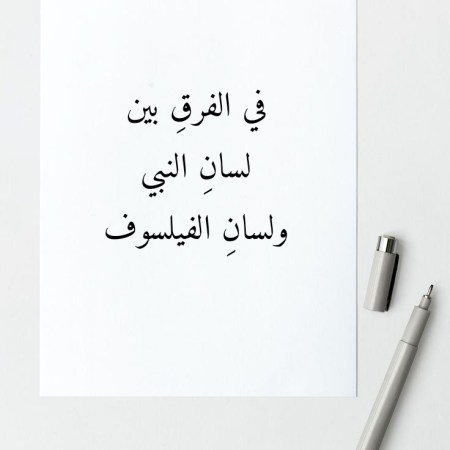 في الفرقِ بين
لسانِ النبي
ولسانِ الفيلسوف